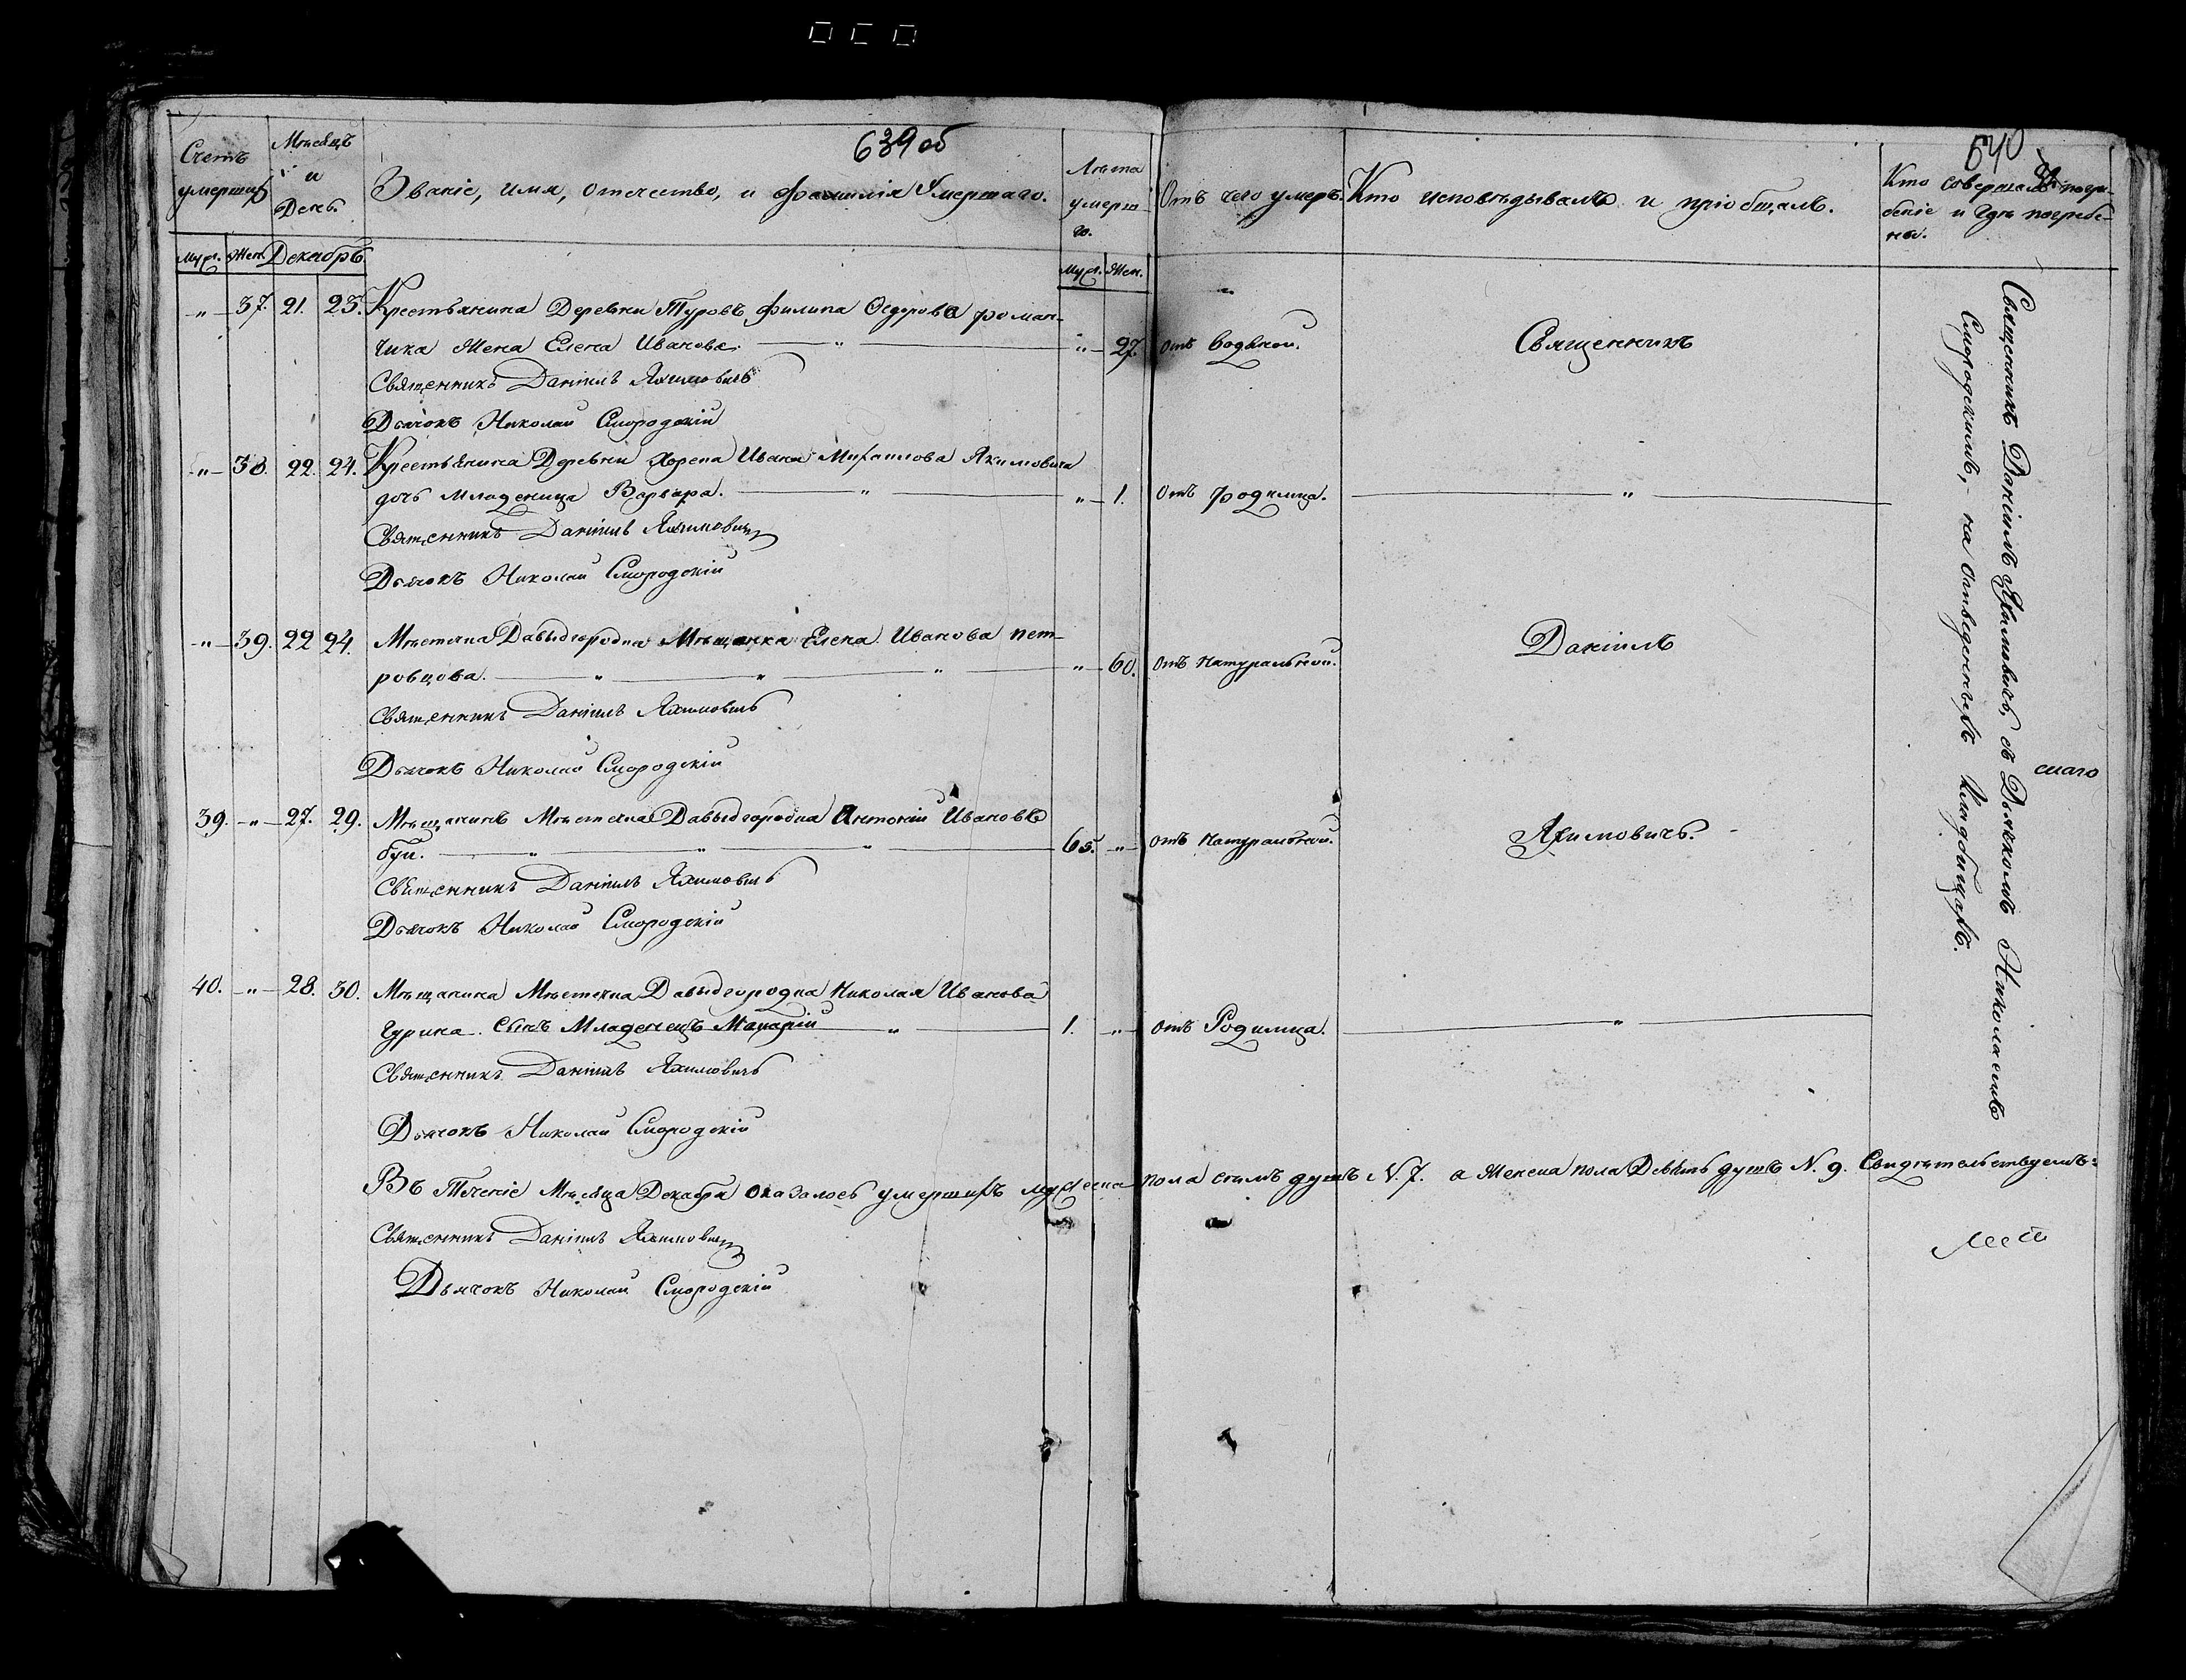 639 об
640
Счетъ умершихъ
Мѣсяцъ и День.
Званіе, имя, отечество, и фамилія Умершаго.
Лѣта умерш-го.
Отъ чего умеръ.
Кто исповѣдывалъ и пріобщалъ.
Кто совершалъ погре-
беніе и гдѣ погребе-
ны.
Муж. Жен. Декабрь
Муж. Жен.
„ 37. 21. 23. Крестьянина Деревни Туровъ Филипа Ѳедорова Роман-
чика Жена Елена Иванова. „ „ 27. отъ водяной. Священникъ
Священникъ Даніилъ Яхимовичъ
Дьячокъ Николай Смородскій
„ 38. 22. 24. Крестьянина Деревни Хорепа Ивана Михаилова Якимовича
дочь младеница Варвара. „ „ 1. отъ родимца. „
Священникъ Даніилъ Яхимовичъ
Дьячокъ Николай Смородскій
„ 39. 22 24. Мѣстечка Давыдгородка Мѣщанка Елена Иванова пет-
ровцова. „ „ „ „ 60. отъ натуральной. Даніилъ
Священникъ Даніилъ Яхимовичъ
Дьячокъ Николай Смородскій
39. „ 27. 29. Мѣщанинъ Мѣстечка Давыдгородка Антоній Ивановъ
буй. „ „ „ 65. „ отъ натуральной. Яхимовичъ.
Священникъ Даніилъ Яхимовичъ
Дьячокъ Николай Смородскій
40. „ 28. 30. Мѣщанина Мѣстечка Давыдгородка Николая Иванова
Гурина. сынъ Младенецъ Макарій „ 1. „ отъ Родимца. „
Священникъ Даніилъ Яхимовичъ
Дьячокъ Николай Смородскій
Священникъ Даніилъ Яхимовичъ, съ Дьячкомъ Николаемъ
Смородскимъ, на отведенныхъ кладбищахъ.
Въ Теченіе Мѣсяца Декабря оказалось умершихъ мужеска пола семь душъ N. 7. а Женска пола Девять душъ N. 9. Свидѣтельствуемъ:
Священникъ Даніилъ Яхимовичъ
Дьячокъ Николай Смородскій